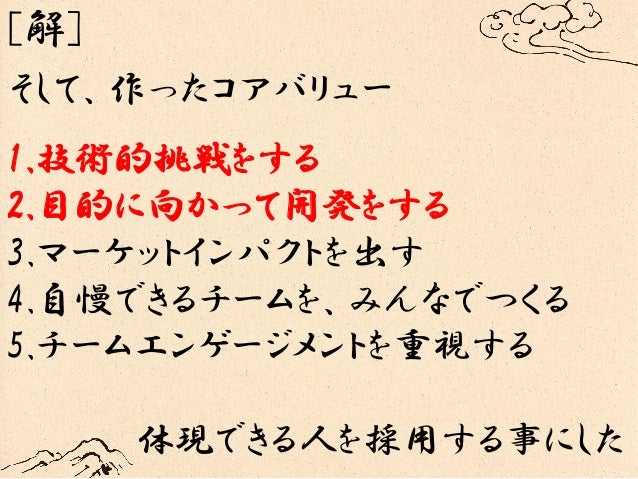 [解]
そして、作ったコアバリュー
1、技術的挑戦をする
2、目的に向かって開発をする
3、マーケットインパクトを出す
4、自慢できるチームを、みんなでつくる
5、チームエンゲージメントを重視する
体現できる人を採用する事にした